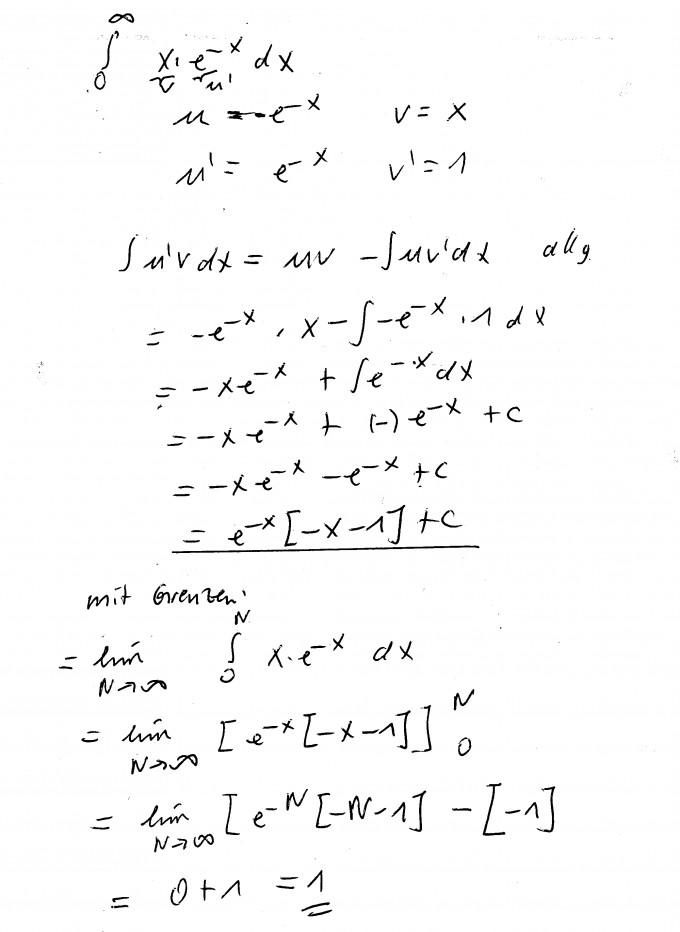 ∞
∫ x · e^-x dx
0 v u'
u = -e^-x v = x
u' = e^-x v' = 1
∫u'v dx = uv - ∫uv'dx allg.
= -e^-x · x - ∫-e^-x · 1 dx
= -xe^-x + ∫e^-x dx
= -xe^-x + (-)e^-x + c
= -xe^-x - e^-x + c
= e^-x [-x-1] + c
mit Grenzen:
N
= lim ∫ x·e^-x dx
N→∞ 0
= lim [e^-x[-x-1]] N
N→∞ 0
= lim [e^-N [-N-1] - [-1]
N→∞
= 0+1 = 1